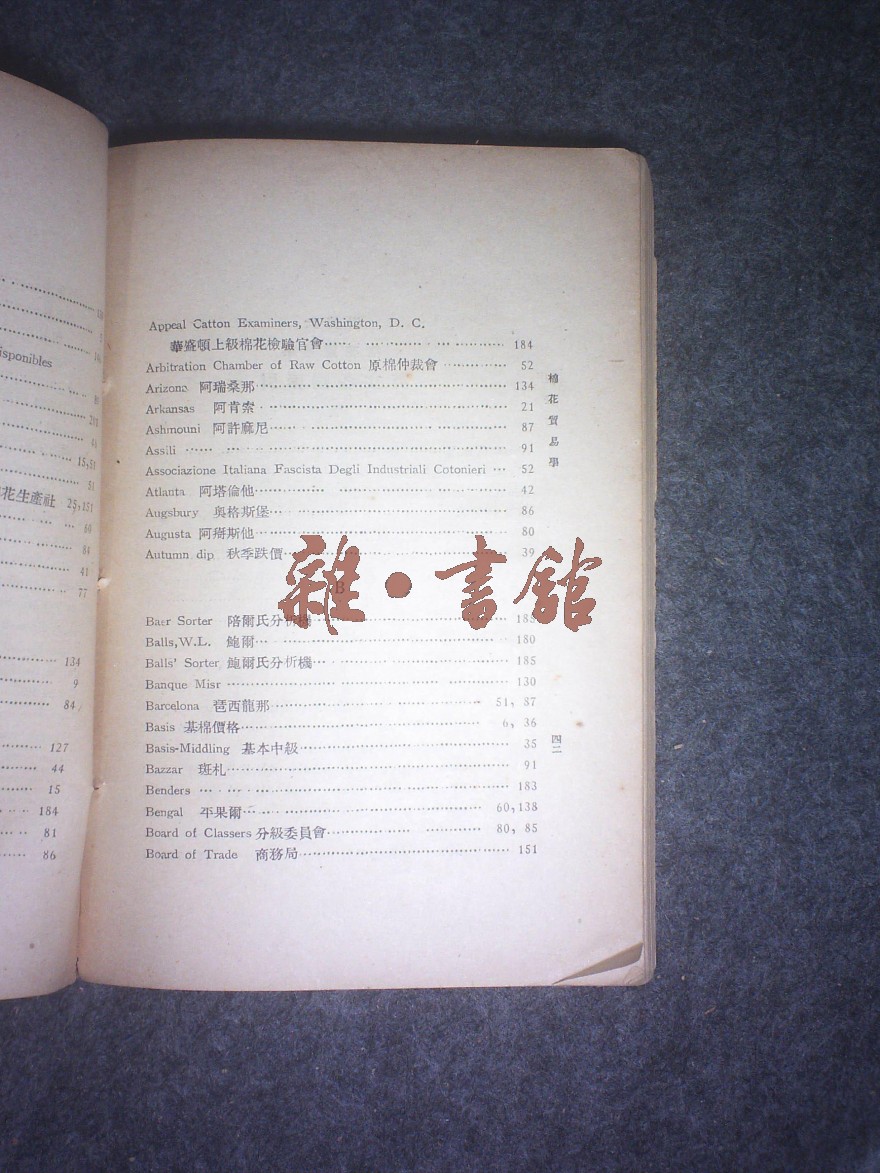 isponibles
15,51
51
花生產社 25,151
60
84
41
77
134
9
84
127
44
15
184
81
86
Appeal Catton Examiners, Washington, D. C.
華盛頓上級棉花檢驗官會 184
Arbitration Chamber of Raw Cotton 原棉仲裁會 52
Arizona 阿瑞桑那 134
Arkansas 阿肯索 21
Ashmouni 阿許麻尼 87
Assili 91
Associazione Italiana Fascista Degli Industriali Cotonieri 52
Atlanta 阿塔倫他 42
Augsbury 奥格斯堡 86
Augusta 阿搿斯他 80
Autumn dip 秋季跌價 39
B
Baer Sorter 陪爾氏分析機 185
Balls, W.L. 鮑爾 180
Balls' Sorter 鮑爾氏分析機 185
Banque Misr 130
Barcelona 琶西龍那 51, 87
Basis 基棉價格 6, 36
Basis-Middling 基本中級 35
Bazzar 斑札 91
Benders 183
Bengal 平果爾 60,138
Board of Classers 分級委員會 80, 85
Board of Trade 商務局 151
棉花貿易學
四二
雜·書館